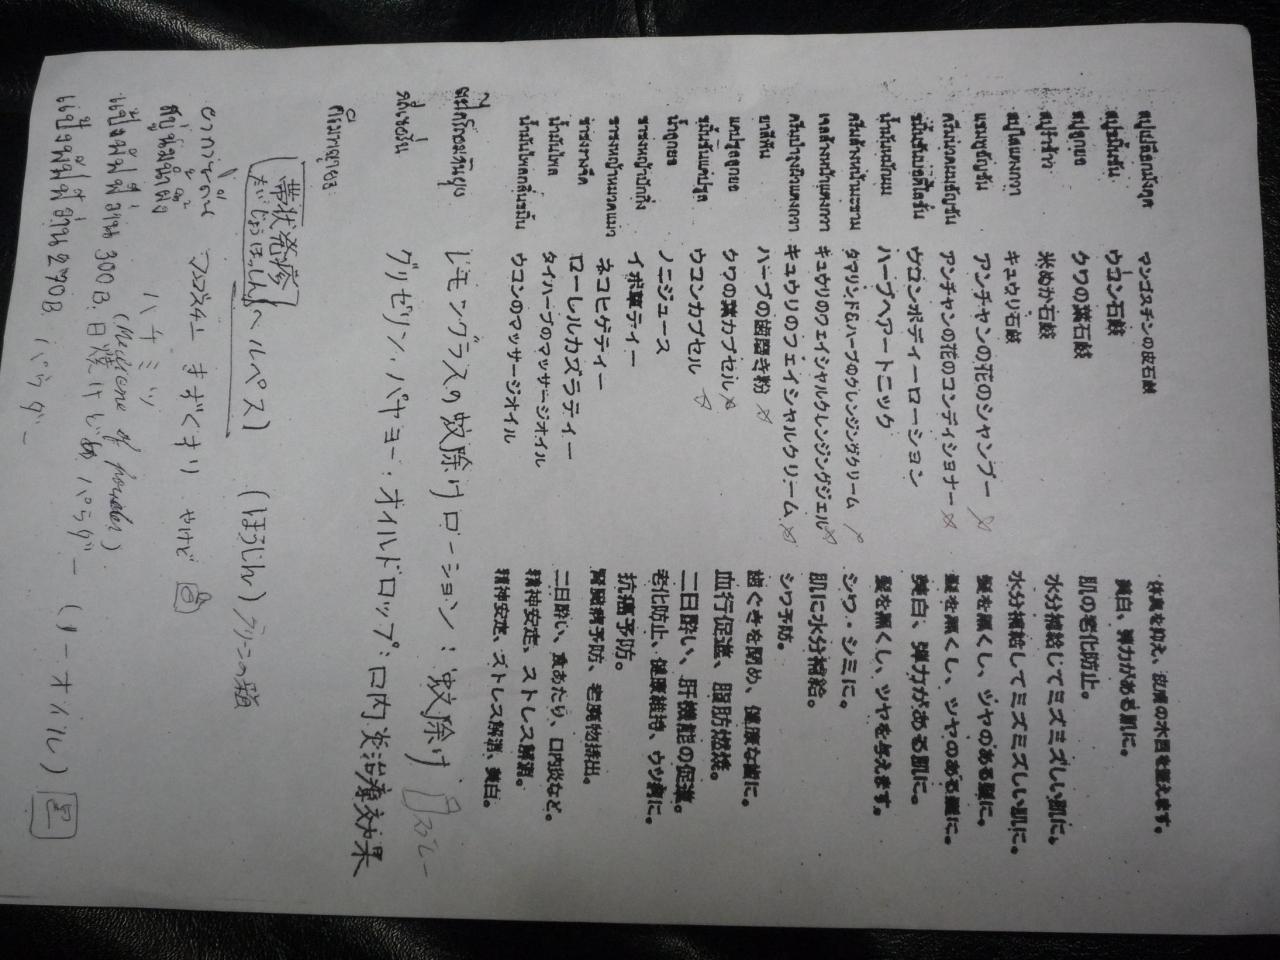 สบู่เปลือกมังคุด マンゴスチンの皮石鹸 体臭を抑え、皮膚の水西を整えます。
สบู่ขมิ้นชัน ウコン石鹸 美白、弾力がある肌に。
สบู่ลูกยอ クワの葉石鹸 肌の老化防止。
สบู่รำข้าว 米ぬか石鹸 水分補給してミズミズしい肌に。
สบู่ใสแตงกวา キュウリ石鹸 水分補給してミズミズしい肌に。
แชมพูอัญชัน アンチャンの花のシャンプー ☆ 髪を黒くし、ツヤのある髪に。
ครีมนวดผมอัญชัน アンチャンの花のコンディショナー ☆ 髪を黒くし、ツヤのある髪に。
ขมิ้นชันบอดี้โลชั่น ウコンボディーローション 美白、弾力がある肌に。
น้ำมันหมักผม ハーブヘアートニック 髪を黒くし、ツヤを与えます。
ครีมล้างหน้ามะขาม タマリンド&ハーブのクレンジングクリーム シワ・シミに。
เจลล้างหน้าแตงกวา キュウリのフェイシャルクレンジングジェル ☆ 肌に水分補給。
ครีมบำรุงผิวแตงกวา キュウリのフェイシャルクリーム ☆ シワ予防。
ยาสีฟัน ハーブの歯磨き粉 ☆ 歯ぐきを閉め、健康な歯に。
แคปซูลลูกยอ クワの葉カプセル ☆ 血行促進、脂肪燃焼。
ขมิ้นชันแคปซูล ウコンカプセル ☆ 二日酔い、肝機能の促進。
น้ำลูกยอ ノニジュース 老化防止、健康維持、ウツ病に。
ชาชงหญ้าปักกิ่ง イボ草ティー 抗癌予防。
ชาชงหญ้าหนวดแมว ネコヒゲティー 腎臓病予防、老廃物排出。
ชาชงรางจืด ローレルカズラティー 二日酔い、食あたり、口内炎など。
น้ำมันไพล タイハーブのマッサージオイル 精神安定、ストレス解消。
น้ำมันไพลกลิ่นขมิ้น ウコンのマッサージオイル 精神安定、ストレス解消、美白。
ตะไคร้หอมกันยุง レモングラスの蚊除けローション:蚊除け スプレー
กลีเซอรีน グリセリン パヤヨー:オイルドロップ:口内炎治療効果
ครีมพญายอ
帯状発疹 ヘルペス)
たいじょうほっしん
マスタナー きずぐすり やけど
ハチミツ
แป้งพม่าสีส้ม 300B:日焼け止めパウダー (ノーオイル)
(Medicine of powder)
270B パウダー